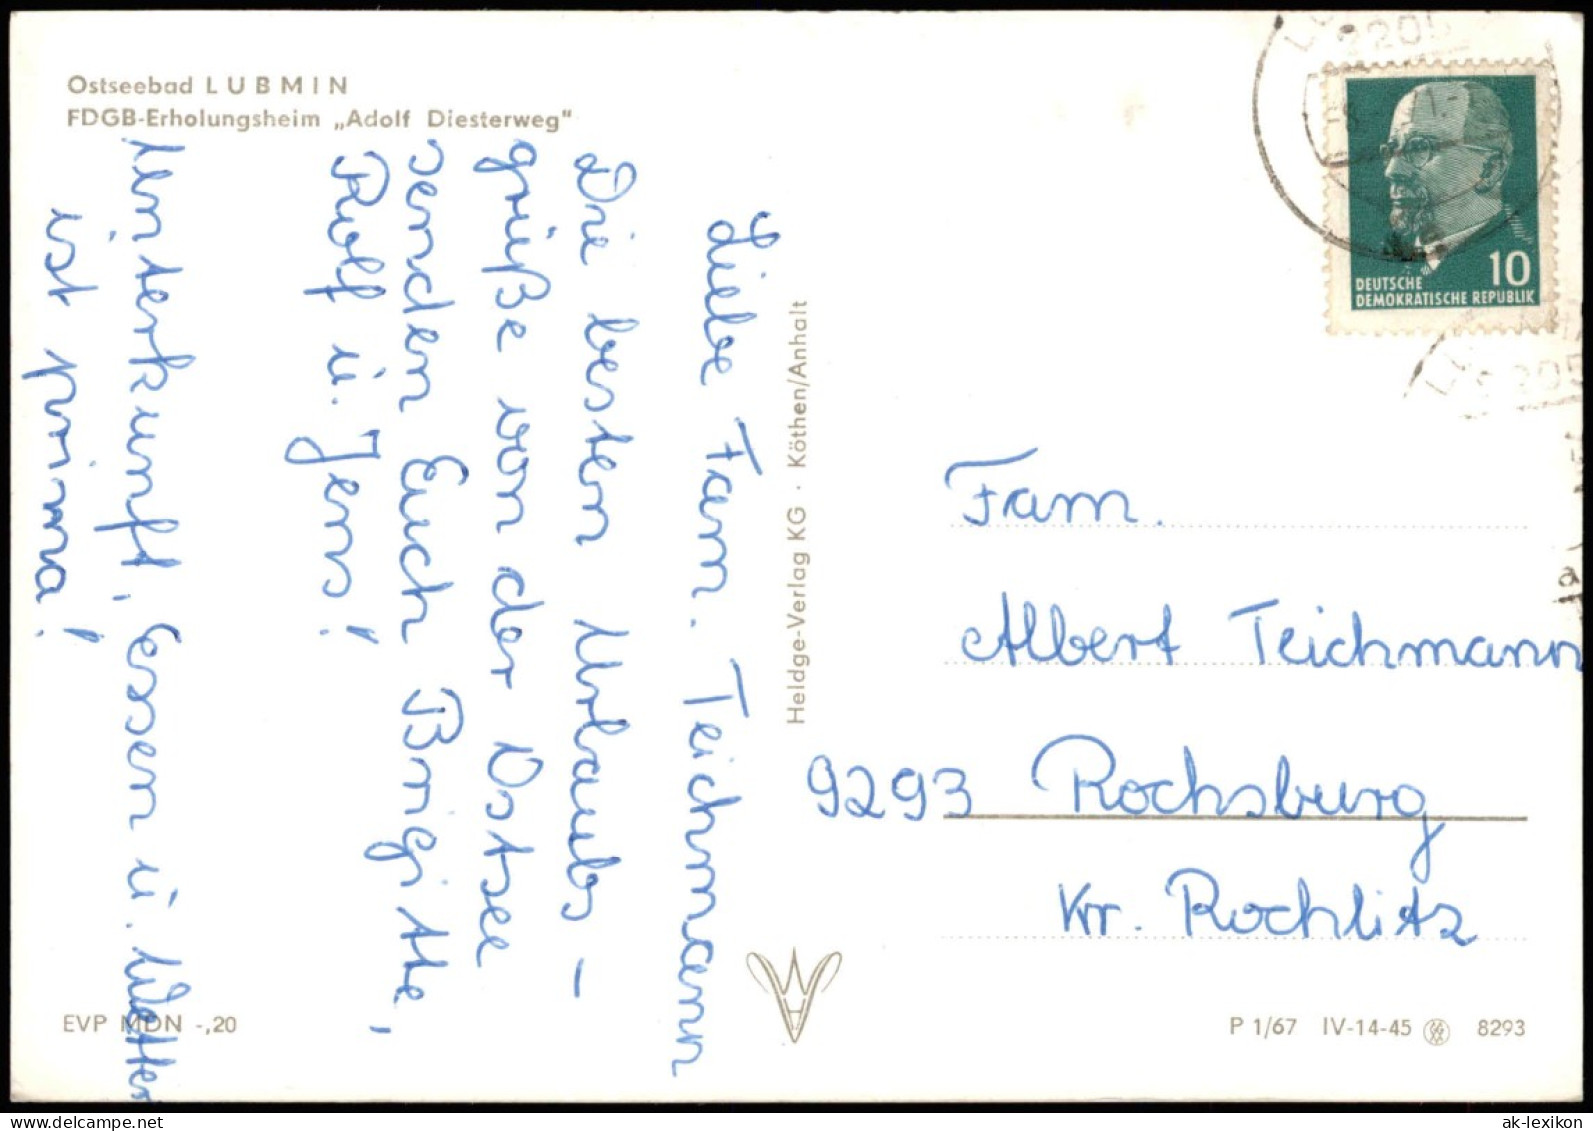 Ostseebad LUBMIN
FDGB-Erholungsheim „Adolf Diesterweg"
Liebe Fam. Teichmann
Die besten Urlaubs-
grüße von der Ostsee
senden Euch Brigitte,
Rolf u. Jens!
Unterkunft, Essen u. Wetter
ist prima!
Heldge-Verlag KG · Köthen/Anhalt
2205
10
DEUTSCHE
DEMOKRATISCHE REPUBLIK
2205
Fam.
Albert Teichmann
9293 Rochsburg
Kr. Rochlitz
EVP MDN -,20
P 1/67 IV-14-45 8293
ak-lexikon